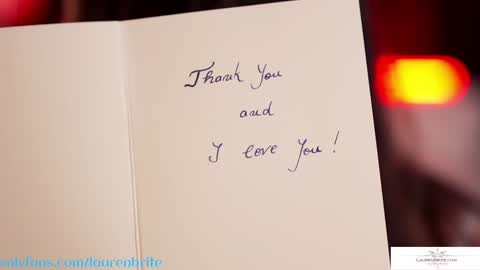 Thank You
and
I love You!
onlyfans.com/laurenbrite
LAURENBRITE.COM